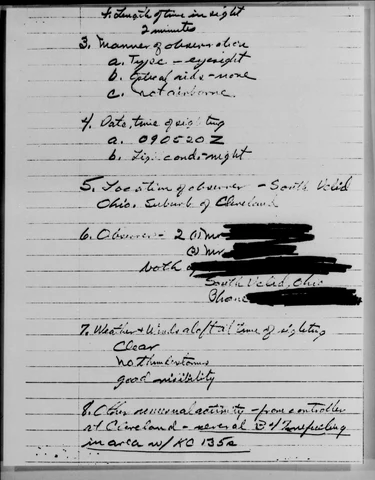 4. Length of time in sight
2 minutes
3. Manner of observation
a. Type - eyesight
b. Optical aids - none
c. not airborne
4. Date, time of sighting
a. 090520Z
b. Light cond - night
5. Location of observer - South Uclid
Ohio. Suburb of Cleveland
6. Observer - 2 (1) Mr
(2) Mr
both
South Uclid, Ohio
Phone
7. Weather & Winds aloft at time of sighting
Clear
no thunderstorms
good visibility
8. Other unusual activity - from controller
at Cleveland - several refueling
in area w/ KC 135s